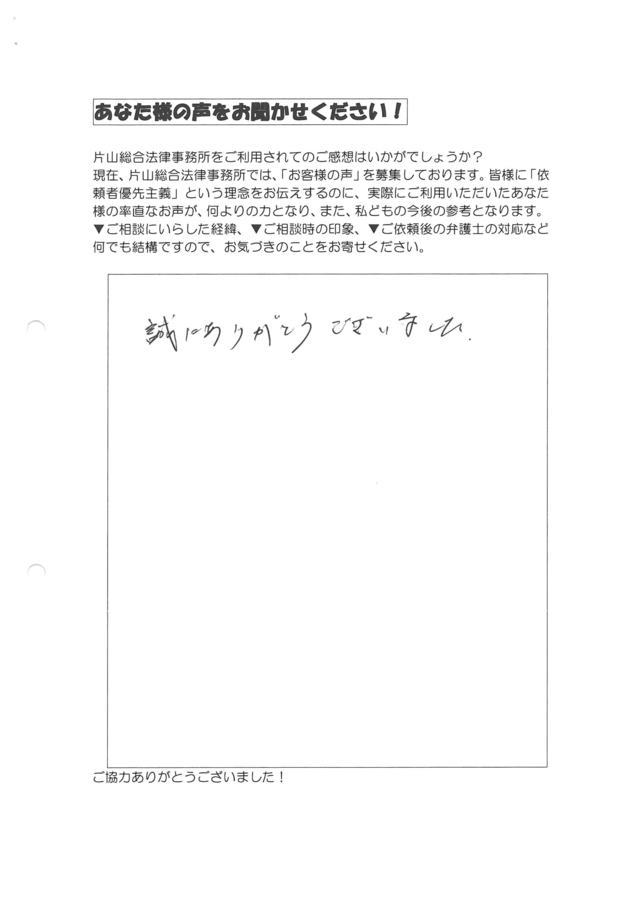 あなた様の声をお聞かせください！
片山総合法律事務所をご利用されてのご感想はいかがでしょうか？
現在、片山総合法律事務所では、「お客様の声」を募集しております。皆様に「依
頼者優先主義」という理念をお伝えするのに、実際にご利用いただいたあなた
様の率直なお声が、何よりの力となり、また、私どもの今後の参考となります。
▼ご相談にいらした経緯、▼ご相談時の印象、▼ご依頼後の弁護士の対応など
何でも結構ですので、お気づきのことをお寄せください。
誠にありがとうございました.
ご協力ありがとうございました！